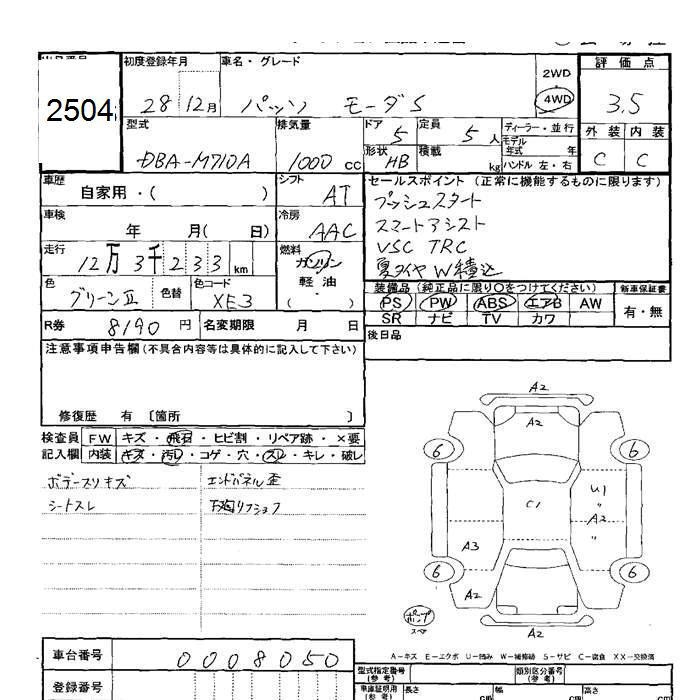 2504
初度登録年月 車名・グレード 2WD 4WD 評価点
28 12月 パッソ モーダS 3.5
型式 排気量 ドア 5 定員 5 人 ディーラー・並行 外装 内装
DBA-M710A 1000 cc 形状 HB 積載 kg モデル年式 年 ハンドル 左・右 C C
車歴 自家用・( ) シフト AT セールスポイント (正常に機能するものに限ります)
プッシュスタート
車検 年 月( 日) 冷房 AAC スマートアシスト
VSC TRC
走行 12万3千233 km 燃料 ガソリン 軽油 ( ) 夏タイヤW積込
色 グリーンⅡ 色替 色コード XE3
装備品 (純正品に限り○をつけてください) 新車保証書
PS PW ABS エアB AW 有・無
SR ナビ TV カワ
R券 8190 円 名変期限 月 日 後日品
注意事項申告欄(不具合内容等は具体的に記入して下さい)
修復歴 有 〔箇所 〕
検査員 FW キズ・飛石・ヒビ割・リペア跡・×要
記入欄 内装 キズ・汚レ・コゲ・穴・スレ・キレ・破レ
ボデースリキズ エンドパネル歪
シートスレ
A2
A2
6 6
C1 U1
〃
A2
〃
A3
6 6
A2
ポンプ
スペア
A2
A-キズ E-エクボ U-凹み W-補修跡 S-サビ C-腐食 XX-交換済
車台番号 0008050
登録番号
型式指定番号 (参考) 類別区分番号 (参考)
車庫証明用 (参考) 長さ 幅 高さ